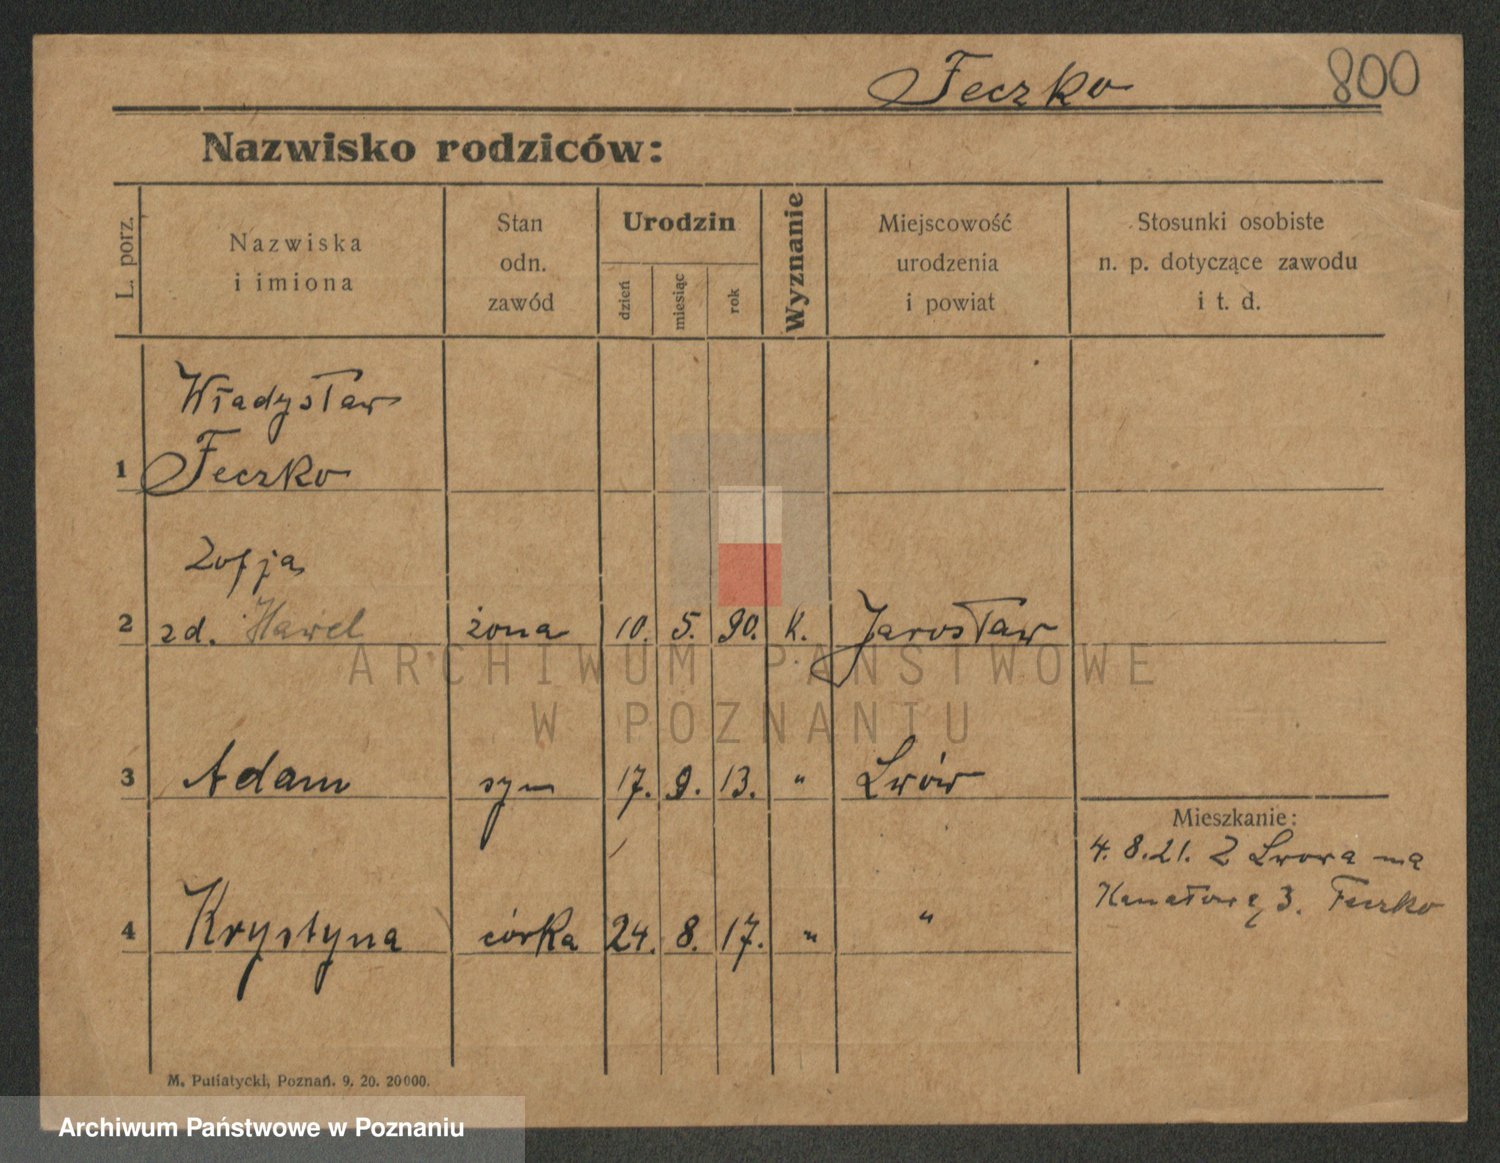 Feczko 800
Nazwisko rodziców:
L. porz.
Nazwiska
i imiona
Stan
odn.
zawód
Urodzin
dzień
miesiąc
rok
Wyznanie
Miejscowość
urodzenia
i powiat
Stosunki osobiste
n. p. dotyczące zawodu
i t. d.
Władysław
1 Feczko
Zofja
2 zd. Hawel żona 10. 5. 90. k. Jarosław
ARCHIWUM PAŃSTWOWE
W POZNANIU
3 Adam syn 17. 9. 13. " Lwów
Mieszkanie:
4. 8. 21. Z Lwowa na
3. Feczko
4 Krystyna córka 24. 8. 17. " "
M. Putiatycki, Poznań. 9. 20. 20000.
Archiwum Państwowe w Poznaniu